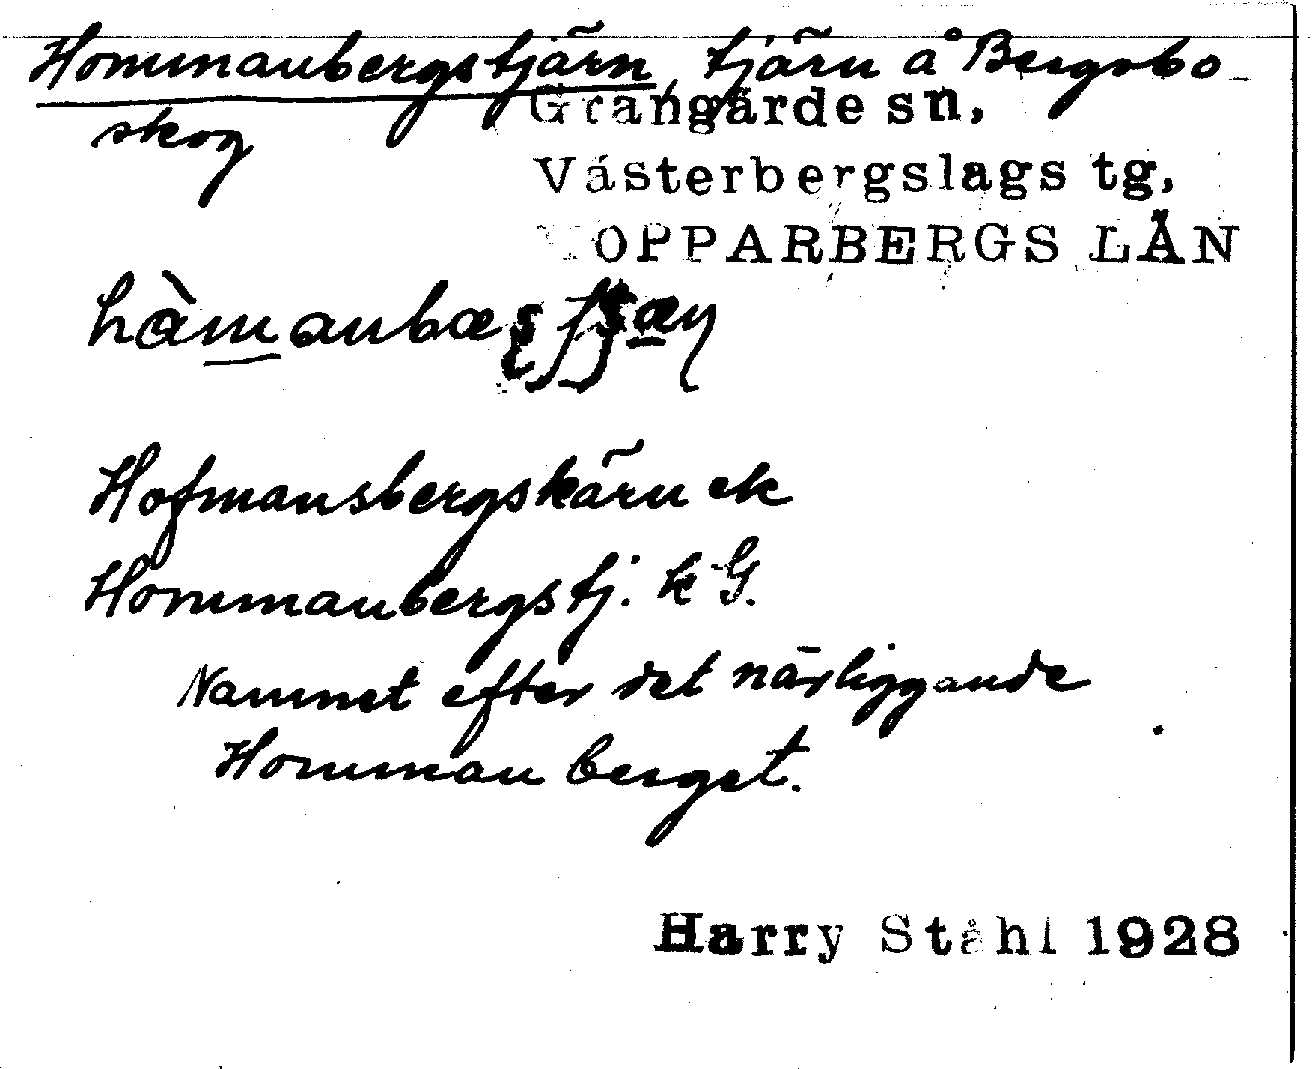 Hommanbergstjärn, tjärn å Bergsbo-
skog
Grangärde sn,
Västerbergslags tg,
KOPPARBERGS LÄN
Hofmansbergskärn ek
Hommanbergstj. k G.
Namnet efter det närliggande
Homman berget.
Harry Ståhl 1928